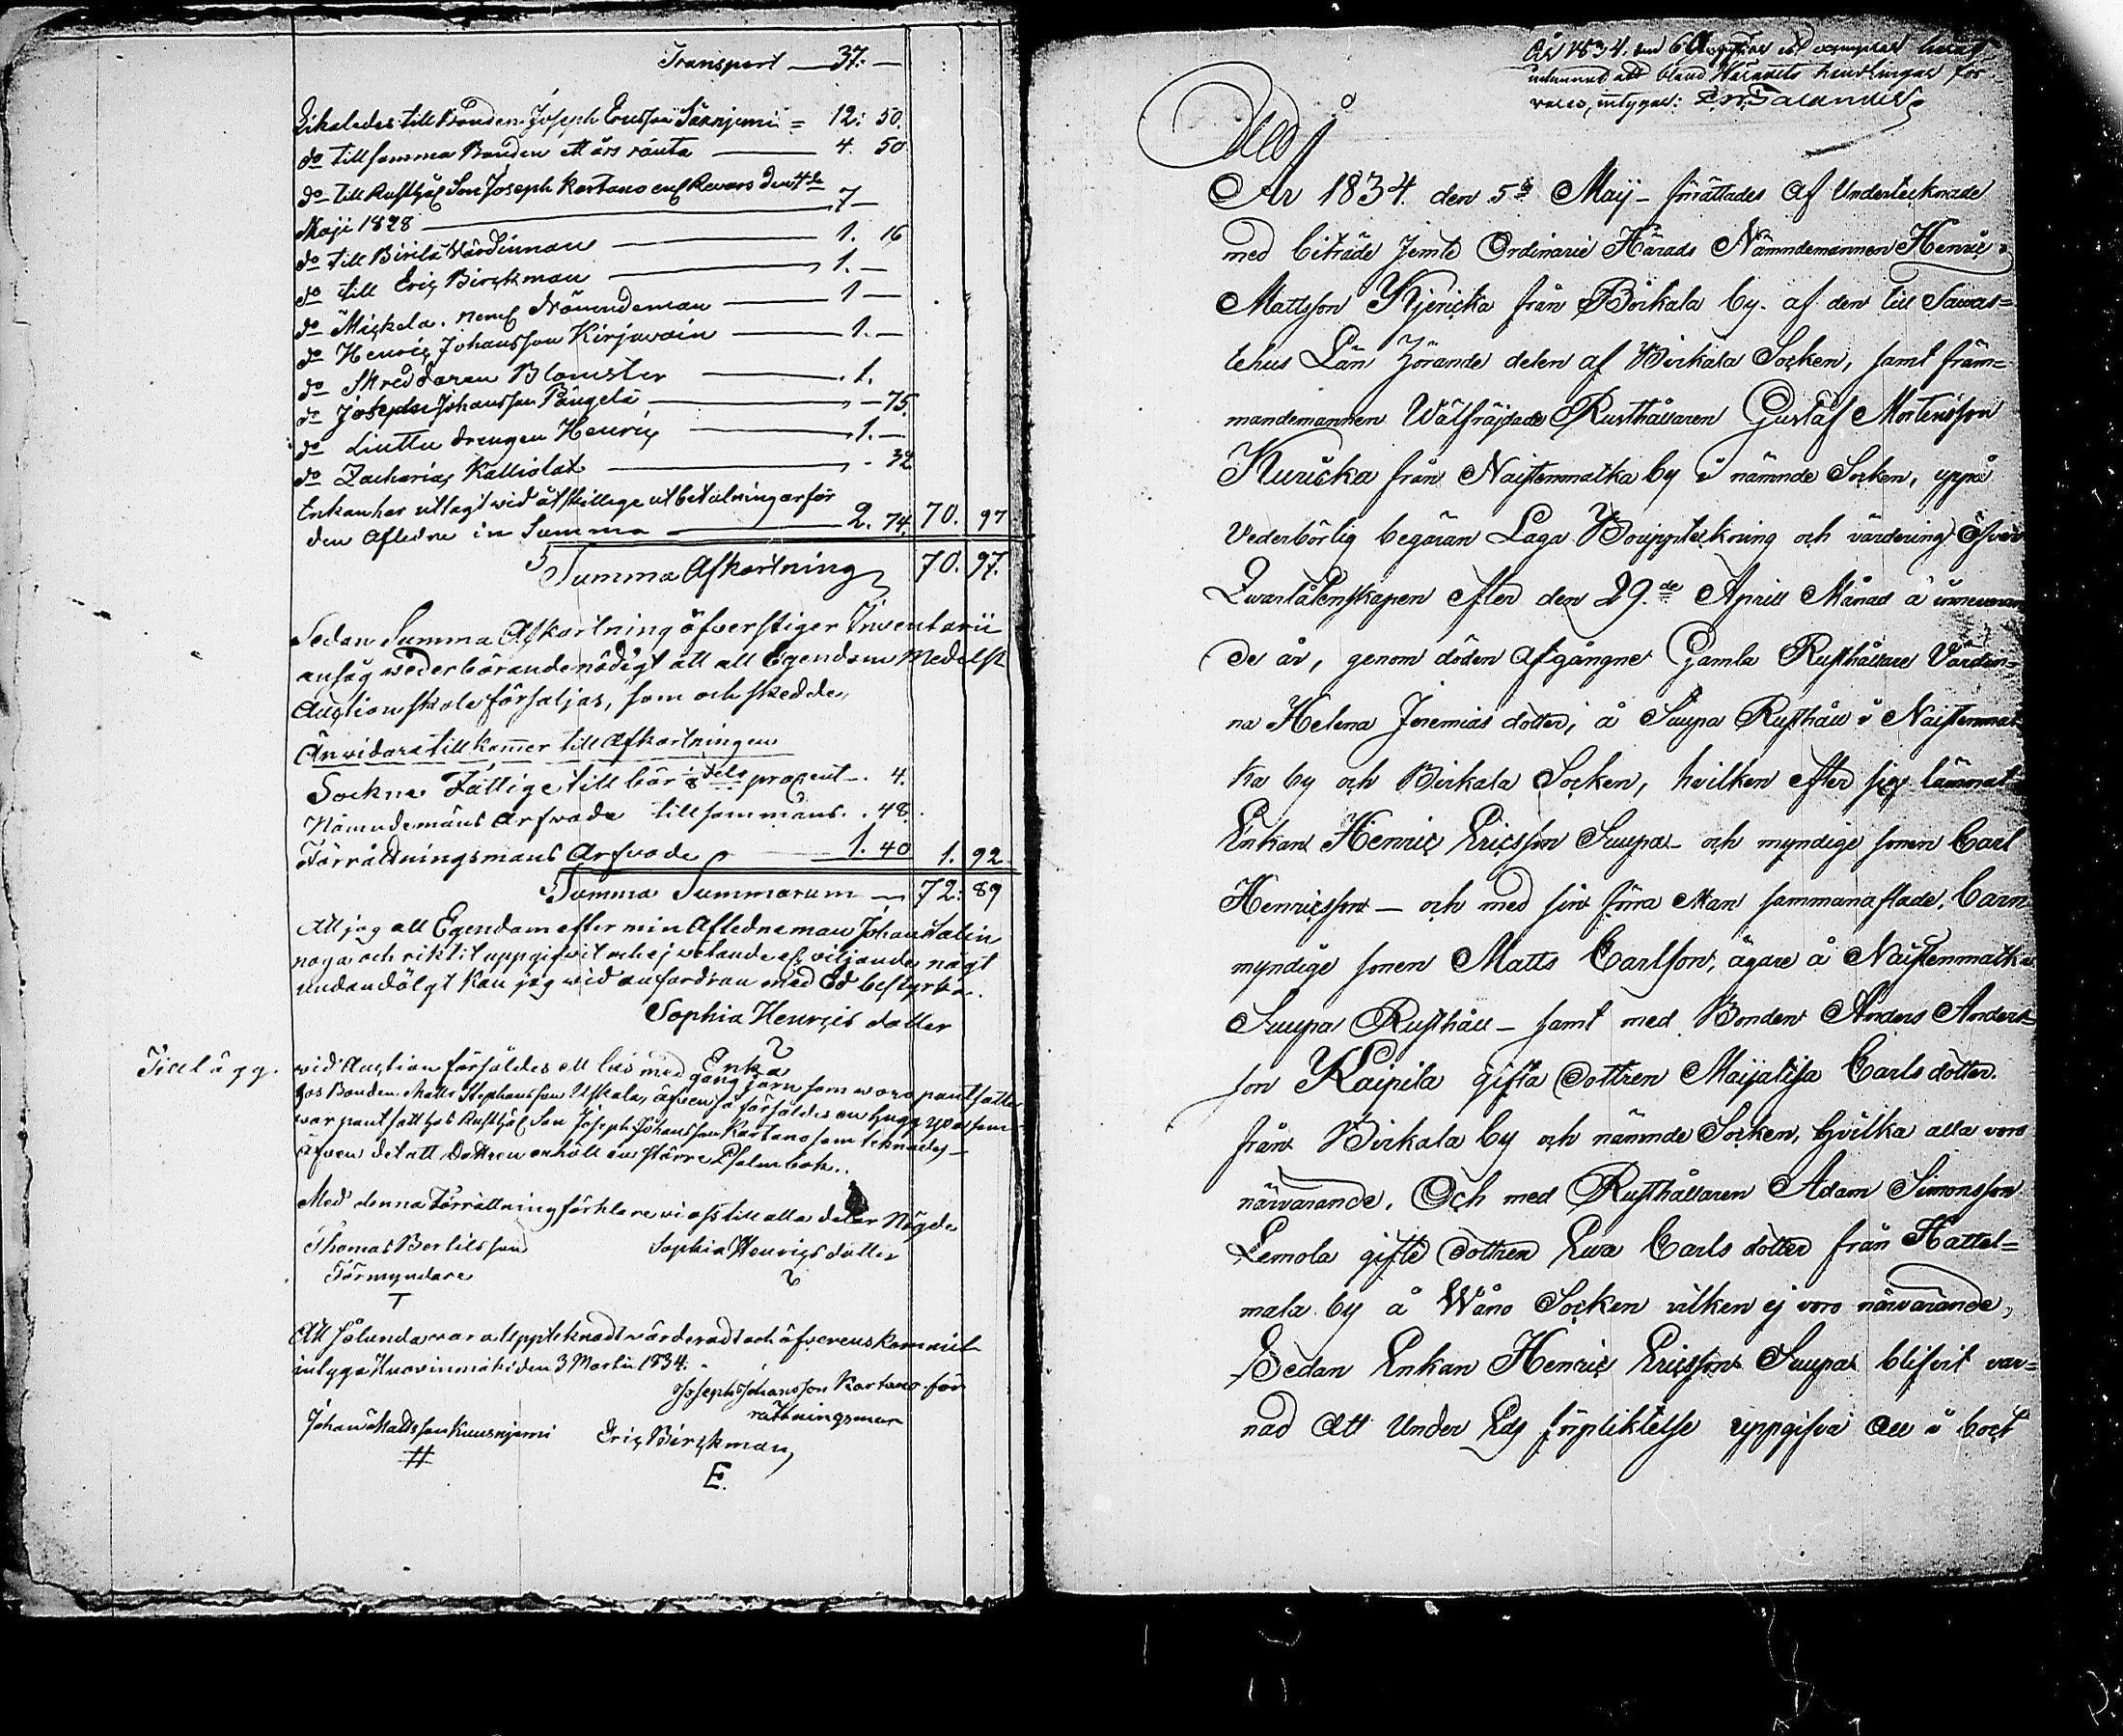 Transport — 37. —
Likaledes till Bonden Joseph Ersson Särnjemi = 12: 50.
do till samma Bonden ett års ränta — 4. 50
do till Rusthål Son Joseph Kartano enl Revers den 4de
Maji 1828 — 7 —
do till Birila Värdinnan — 1. 16
do till Eric Birckman — 1. —
do Mickela. neml Nämndeman — 1 —
do Henric Johansson Kirjavain — 1. —
do Skreddaren Blomster — 1.
do Joseph Johansson Pangela — 75.
do Liuttu drengen Henric — 1. —
do Zacharias Kalliolat — 32
Enkan har utlagt wid åtskillige utbetalningar för
den Afledne in Summa — 2. 74. 70. 97
Summa Afkortning 70. 97.
Sedan Summa Afkortning öfverstiger Inventarii
ansåg wederbörande nödigt att all Egendom Medelst
Auction skola försäljas, som och skedde,
Än vidare tillkommer till Afkortningen
Socknes Fattige tillbär 1/8 dels procent — 4.
Nämndemäns Arfvode tillsammans . 48.
Förrättningsmans Arfvode 1. 40 1. 92
Summa Summarum — 72: 89
Att jag all Egendom efter min Afledne man Johan Salin
noga och riktit uppgifvit och ej vetande el viljande någt
undandölgt kan jag wid anfordran med Ed bestyrka.
Sophia Henrics dotter
Enka
Tillägg. wid Auction försåldes ett lås med gångjärn som woro pantsatte
hos Bonden Matts Stephansson Uskala, äfven så försåldes en hugg yxa som
war pantsatt hos Rusthål Son Joseph Johansson Kartano som teknades —
äfven det att Dottren enhölt en större Psalmbok..
Med denna Förrättning förklare vi oss till alla delar Nögde
Thomas Bertilsson Sophia Henrics dotter
Förmyndare
T
Att sålunda vara Upptecknadt värderadt och öfverenskommit
intyga Knovinmäki den 3 Martii 1834.
Joseph Johansson Kartano för
rättningsman
Johan Mattsson Kuusnjemi Eric Birckman
# E.
År 1834. den 6 Augusti
inlemnat att bland Häradets handlingar för
varas, intygar:
År 1834. den 5te Maij — förrättades af Undertecknade
med biträde Jemte Ordinarie Härads Nämndemannen Henric
Mattsson Kjericka från Birkala by. af den till Tawas=
tehus Län hörande delen af Birkala Socken, samt främ=
mandemannen Wälfräjdade Rusthållaren Gustaf Mortensson
Kuricka från Naistenmatka by i nämnde Socken, uppå
Vederbörlig begäran Laga Bouppteckning och värdering öfver
Qwarlåtenskapen efter den 29.de Aprill Månad å innevaran
de år, genom döden afgångne Gamla Rusthållare Värdin=
na Helena Jeremias dotter, å Suupa Rusthåll i Naistenmat
ka by och Birkala Socken, hvilken efter sig lämnat
Enkan Henric Ericsson Suupa — och myndige sonen Carl
Henricsson — och med sin förra Man sammanaflade, barn
myndige sonen Matts Carlsson, ägare å Naistenmatka
Suupa Rusthåll — samt med Bonden Anders Anders=
son Kaipila gifta dottren Maijalisa Carls dotter.
från Birkala by och nämnde Socken, hvilka alla voro
närvarande. Och med Rusthållaren Adam Simonsson
Lemola gifte dottren Ewa Carls dotter från Hattel=
mala by å Wåno Socken vilken ej voro närvarande,
Sedan Enkan Henric Ericsson Suupa blifvit var=
nad att Under Eds förpliktelse uppgifva all i boet